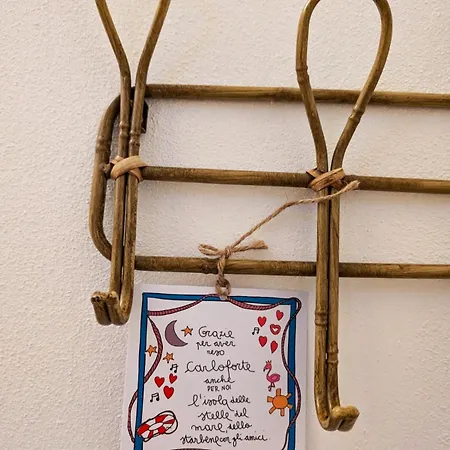 Grazie
per aver
reso
Carloforte
anche
PER NOI
l'isola delle
stelle del
mare, dello
starbene con gli amici.